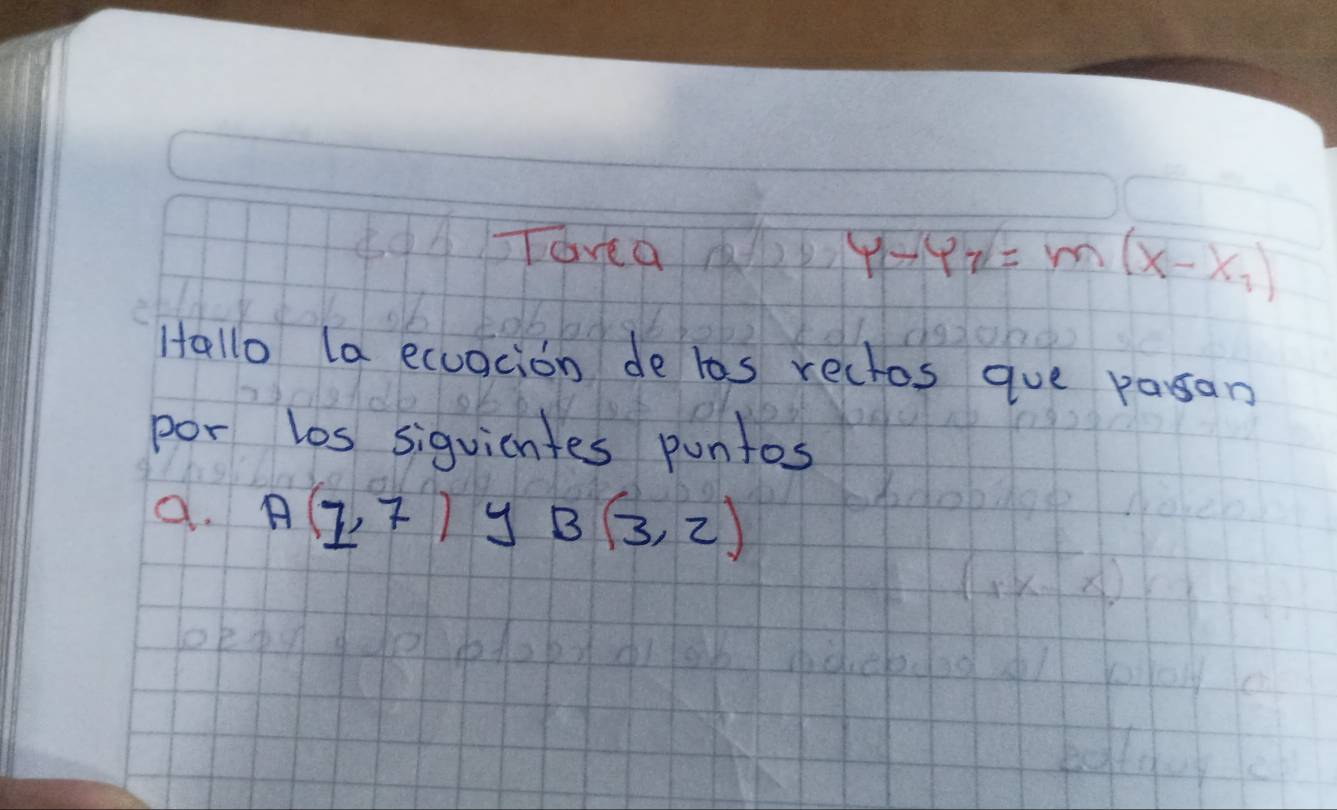 Tarea y-y₁ = m(x-x₁)
Hallo la ecuación de las rectas que pasan
por los siguientes puntos
a. A(1,7) y B(3,2)